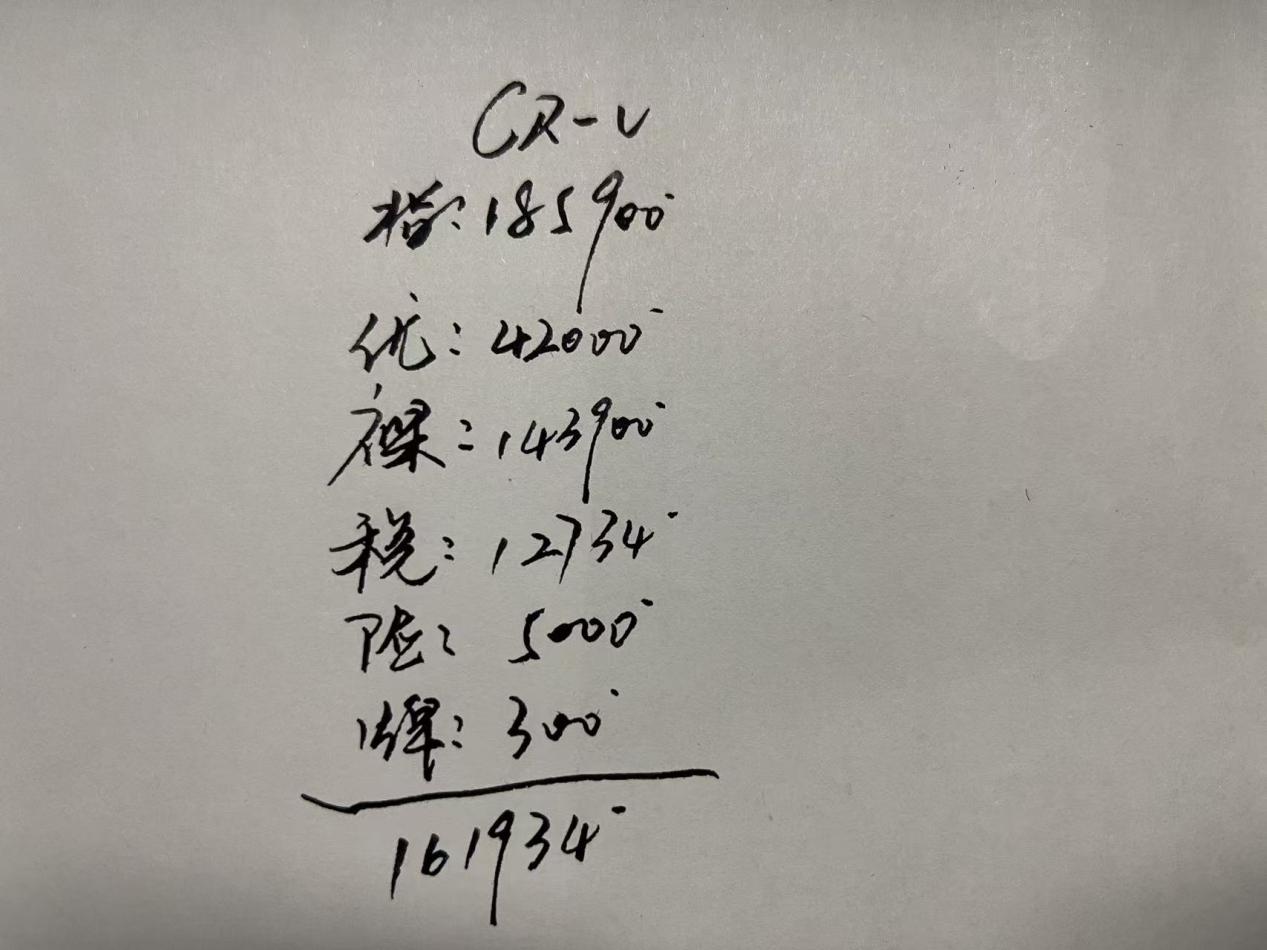 CR-V
指:185900
优:42000
裸:143900
税:12734
险:5000
牌:300
161934